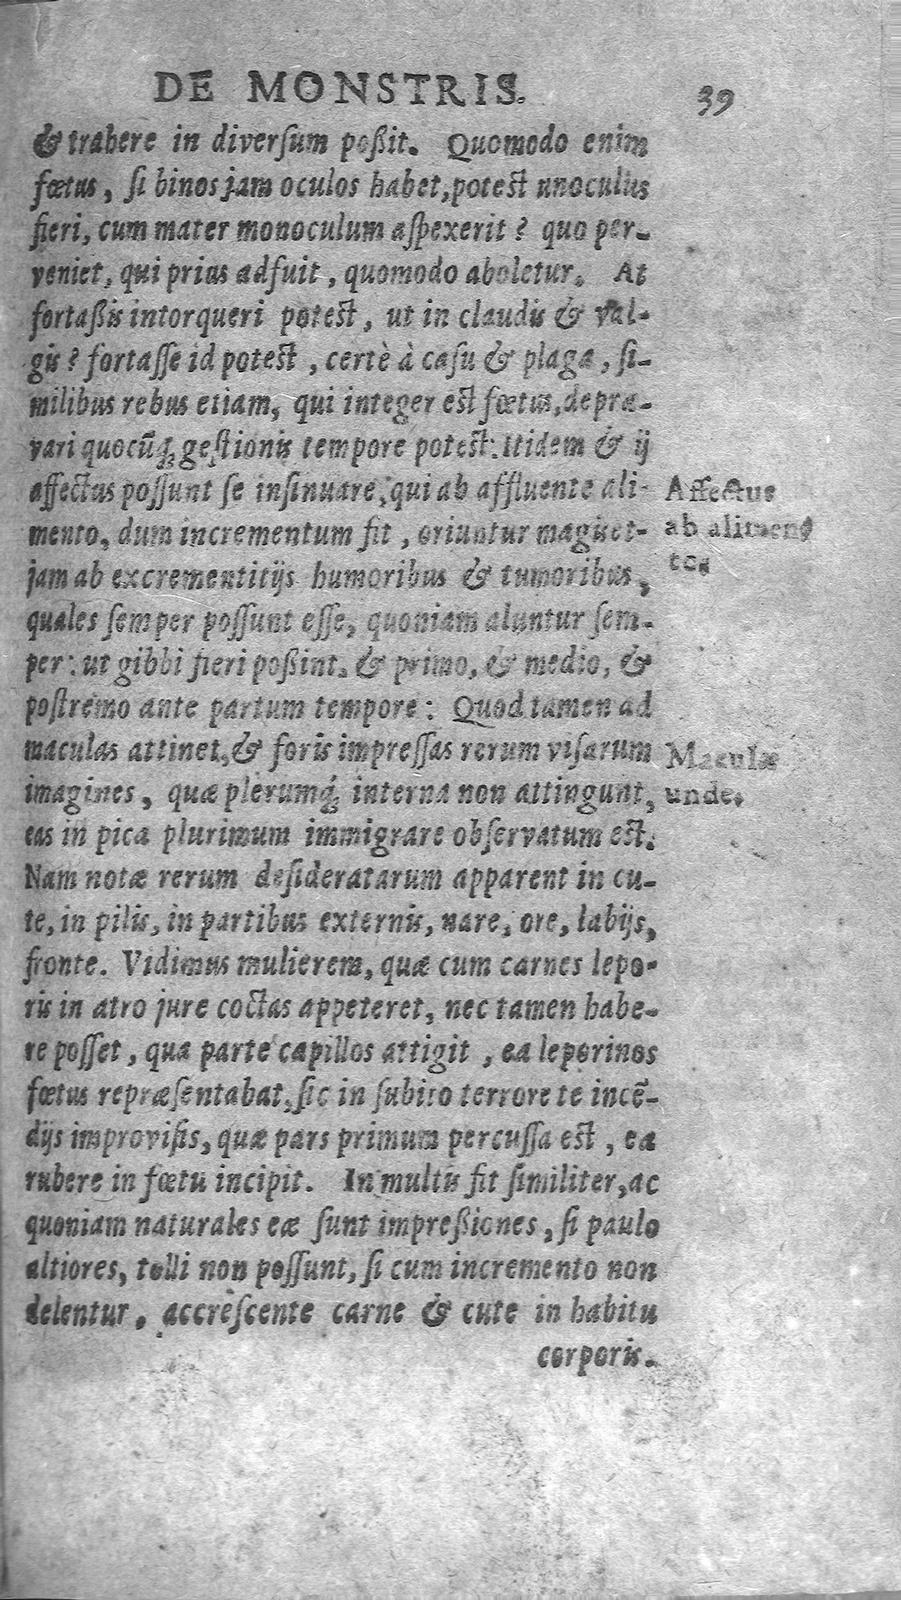 DE MONSTRIS. 39
& trahere in diverſum poßit. Quomodo enim
fœtus, ſi binos jam oculos habet, potest unoculus
fieri, cum mater monoculum aſpexerit? quo per-
veniet, qui prius adfuit, quomodo aboletur. At
fortaßis intorqueri potest, ut in claudis & val-
gis? fortaſſe id potest, certè à caſu & plaga, ſi-
milibus rebus etiam, qui integer est fœtus, depræ-
vari quocūq; geſtionis tempore potest: Itidem & ij
affectus poſſunt ſe inſinuare, qui ab affluente ali-
mento, dum incrementum fit, oriuntur magis et-
jam ab excrementitijs humoribus & tumoribus,
quales ſemper poſſunt eſſe, quoniam aluntur ſem-
per: ut gibbi fieri poßint. & primo, & medio, &
poſtremo ante partum tempore: Quod tamen ad
maculas attinet, & foris impreſſas rerum viſarum
imagines, quæ plerumq́; interna non attingunt,
eas in pica plurimum immigrare obſervatum est.
Nam notæ rerum deſideratarum apparent in cu-
te, in pilis, in partibus externis, nare, ore, labijs,
fronte. Vidimus mulierem, quæ cum carnes lepo-
ris in atro jure coctas appeteret, nec tamen habe-
re poſſet, qua parte capillos attigit, ea leporinos
fœtus repræſentabat, ſic in ſubito terrore te incē-
dijs improviſis, quæ pars primum percuſſa est, ea
rubere in fœtu incipit. In multis fit ſimiliter, ac
quoniam naturales eæ ſunt impreßiones, ſi paulo
altiores, tolli non poſſunt, ſi cum incremento non
delentur, accreſcente carne & cute in habitu
corporis.
Affectus
ab alimen
to.
Maculæ
unde.